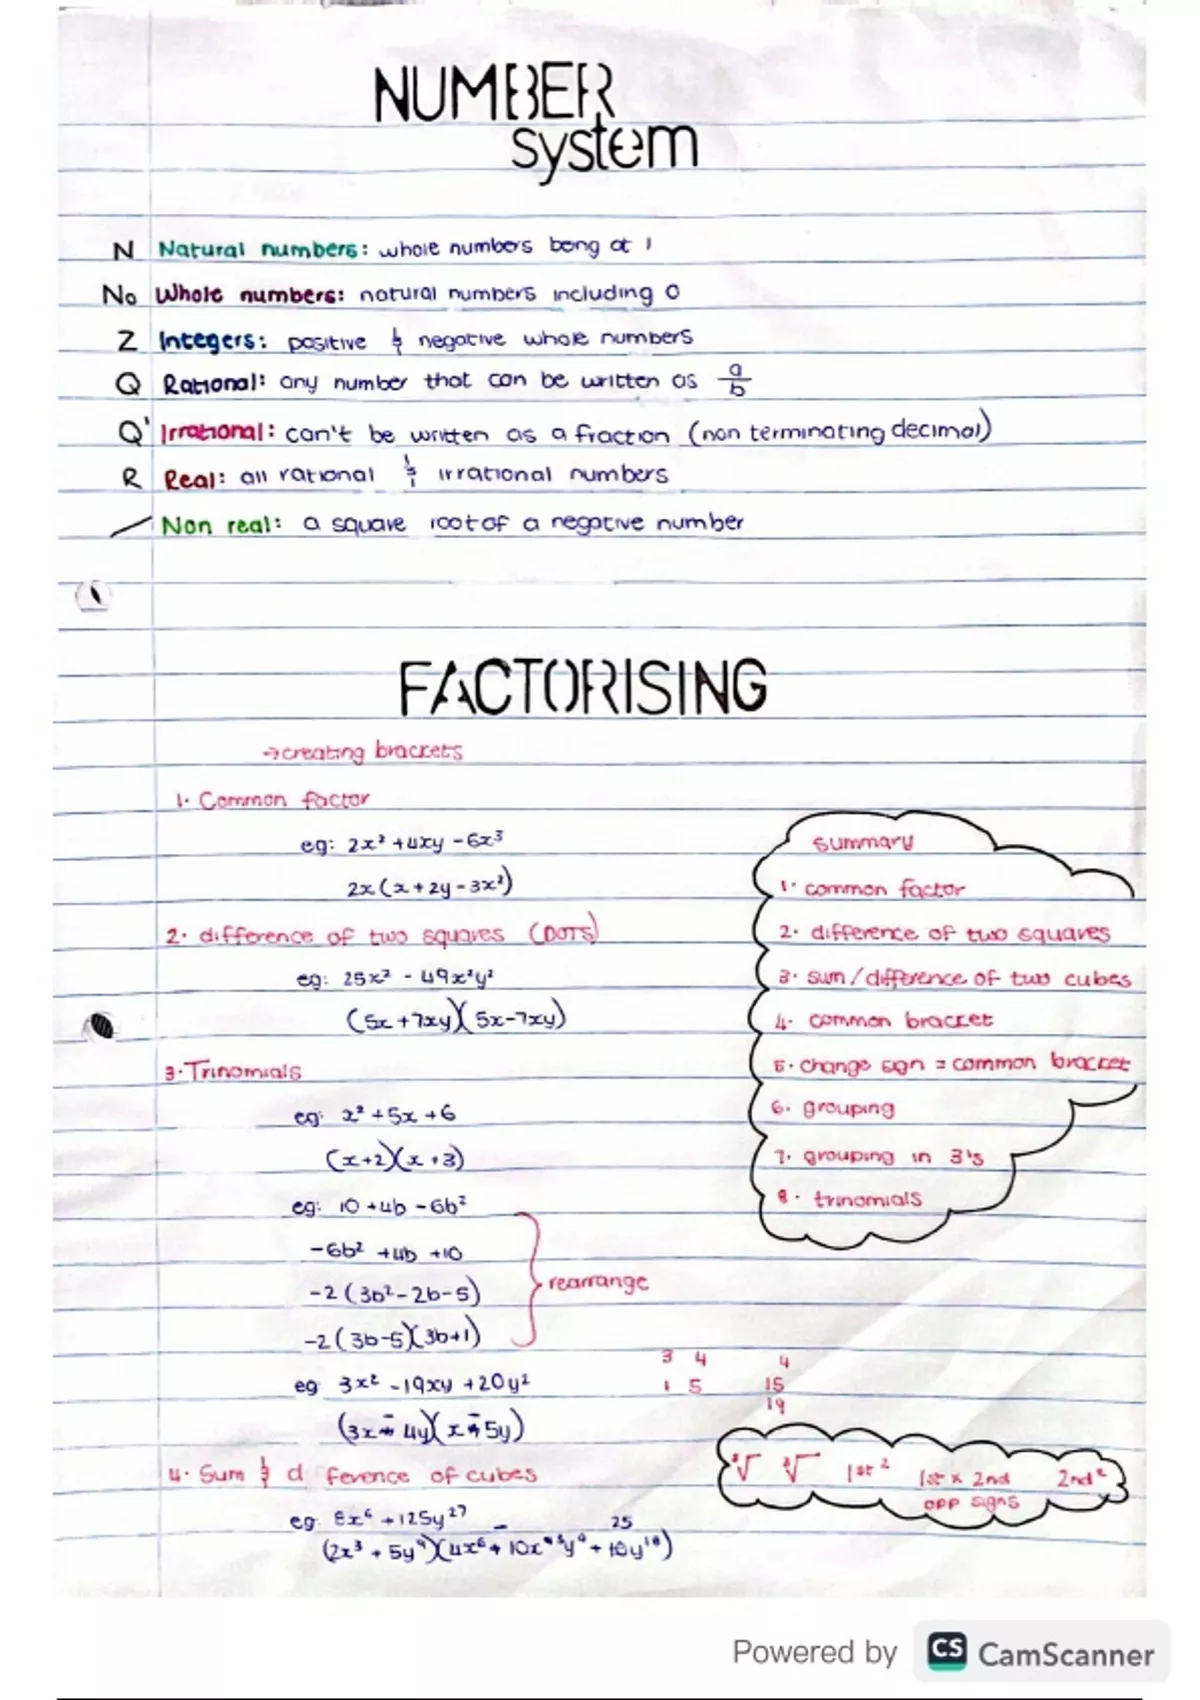 NUMBER
system
N Natural numbers: whole numbers being at 1
No Whole numbers: natural numbers including 0
Z Integers: positive & negative whole numbers
Q Rational: any number that can be written as a/b
Q' Irrational: can't be written as a fraction (non terminating decimal)
R Real: all rational & irrational numbers
Non real: a square root of a negative number
FACTORISING
→creating brackets
1. Common factor
eg: 2x² + 4xy - 6x³
2x(x + 2y - 3x²)
2. difference of two squares (DOTS)
eg: 25x² - 49x²y²
(5x + 7xy)(5x - 7xy)
3. Trinomials
eg: x² + 5x + 6
(x+2)(x+3)
eg: 10 + 4b - 6b²
-6b² + 4b + 10
-2(3b² - 2b - 5)
-2(3b-5)(3b+1)
rearrange
eg 3x² - 19xy + 20y²
(3x - 4y)(x - 5y)
3 4 4
1 5 15
19
4. Sum & d ference of cubes
eg. 8x⁶ + 125y²⁷
(2x³ + 5y⁹)(4x⁶ - 10x³y⁹ + 25y¹⁸)
summary
1. common factor
2. difference of two squares
3. sum/difference of two cubes
4. common bracket
5. change sign = common bracket
6. grouping
7. grouping in 3's
8. trinomials
³√ ³√ 1st² 1st x 2nd 2nd²
opp signs
Powered by CS CamScanner